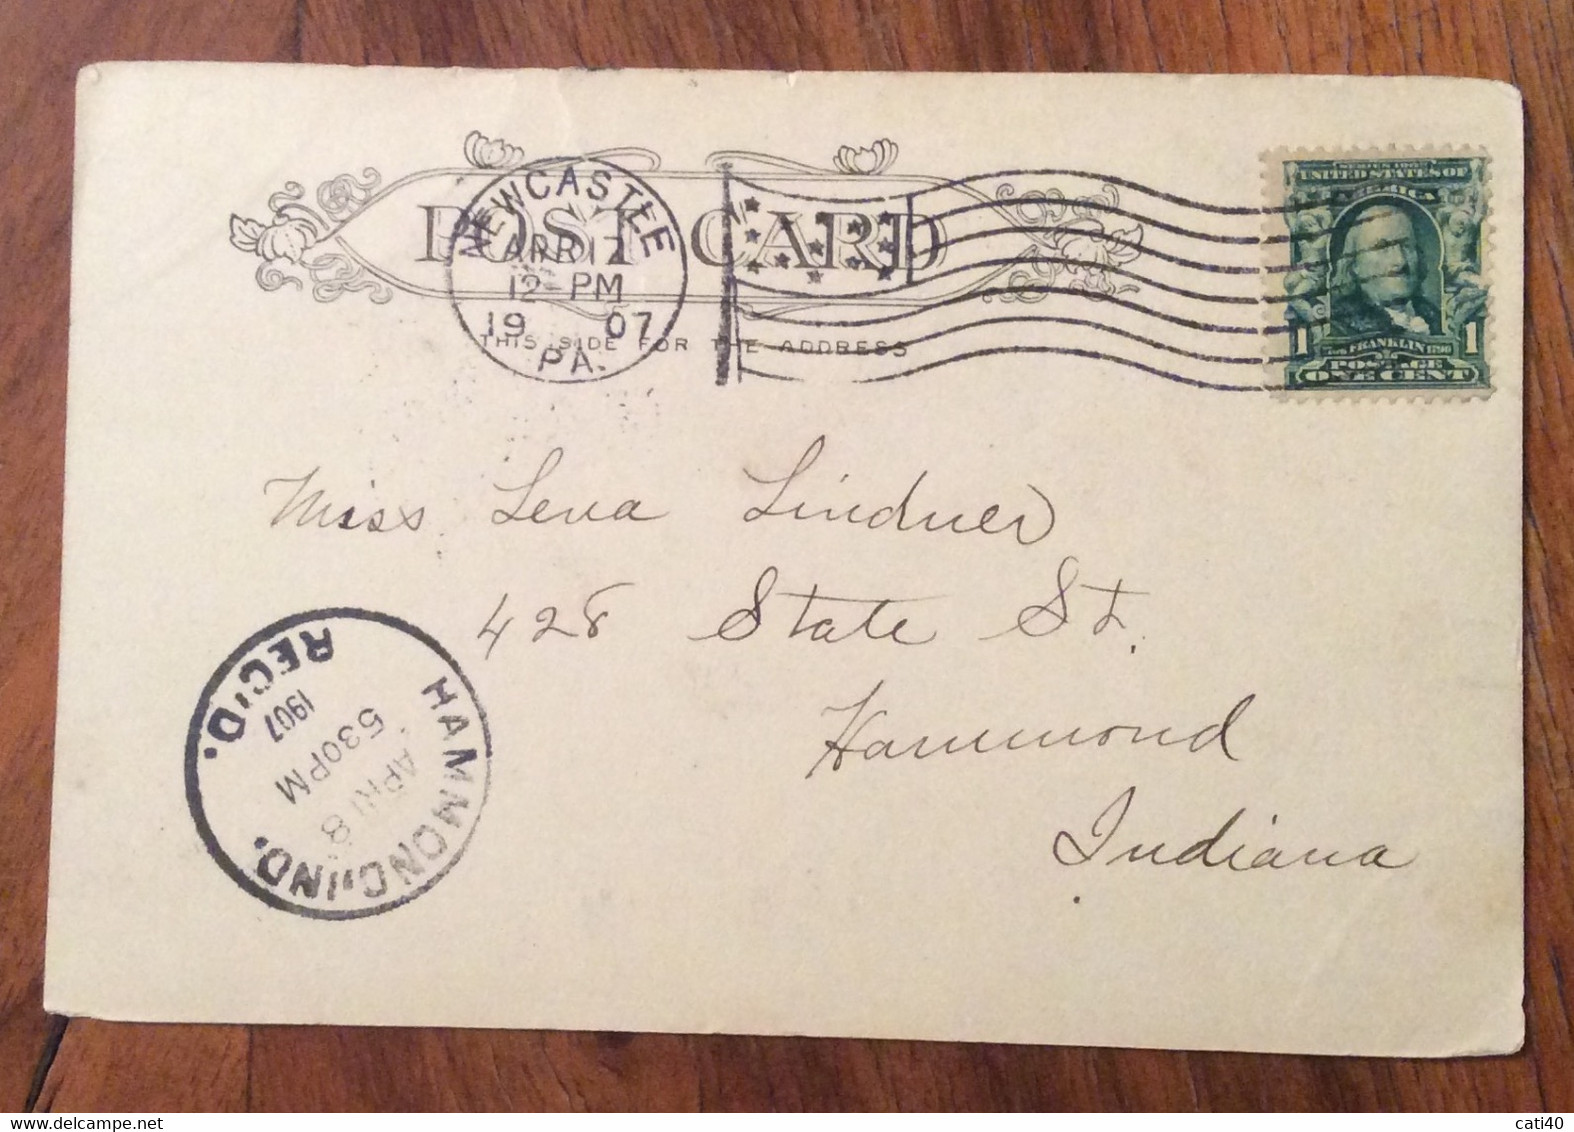 POST CARD
THIS SIDE FOR THE ADDRESS
NEWCASTLE
APR 17
12-PM
1907
PA.
SERIES 1902
UNITED STATES OF
AMERICA
1 FRANKLIN 1790 1
POSTAGE
ONE CENT
Miss Lena Lindner
428 State St.
Hammond
Indiana
HAMMOND, IND.
APR 18
530PM
1907
REC'D.
cati40